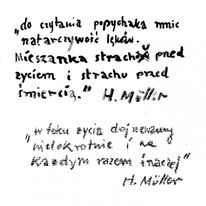 „do czytania popychała mnie
natarczywość lęków.
Mieszanka strachu przed
życiem i strachu przed
śmiercią." H. Müller
„w toku życia dojrzewamy
wielokrotnie i za
każdym razem inaczej"
H. Müller